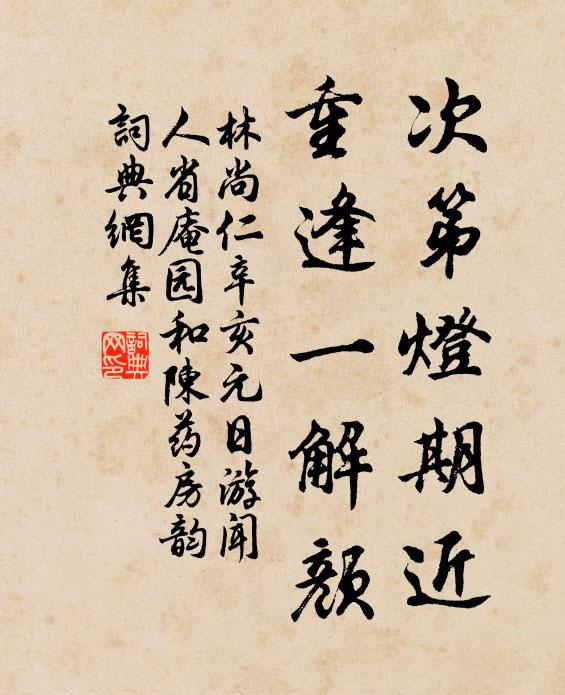 次第燈期近
重逢一解顏
林尚仁辛亥元日游闻
人省庵园和陳药房韵
詞典網集
詞典网印